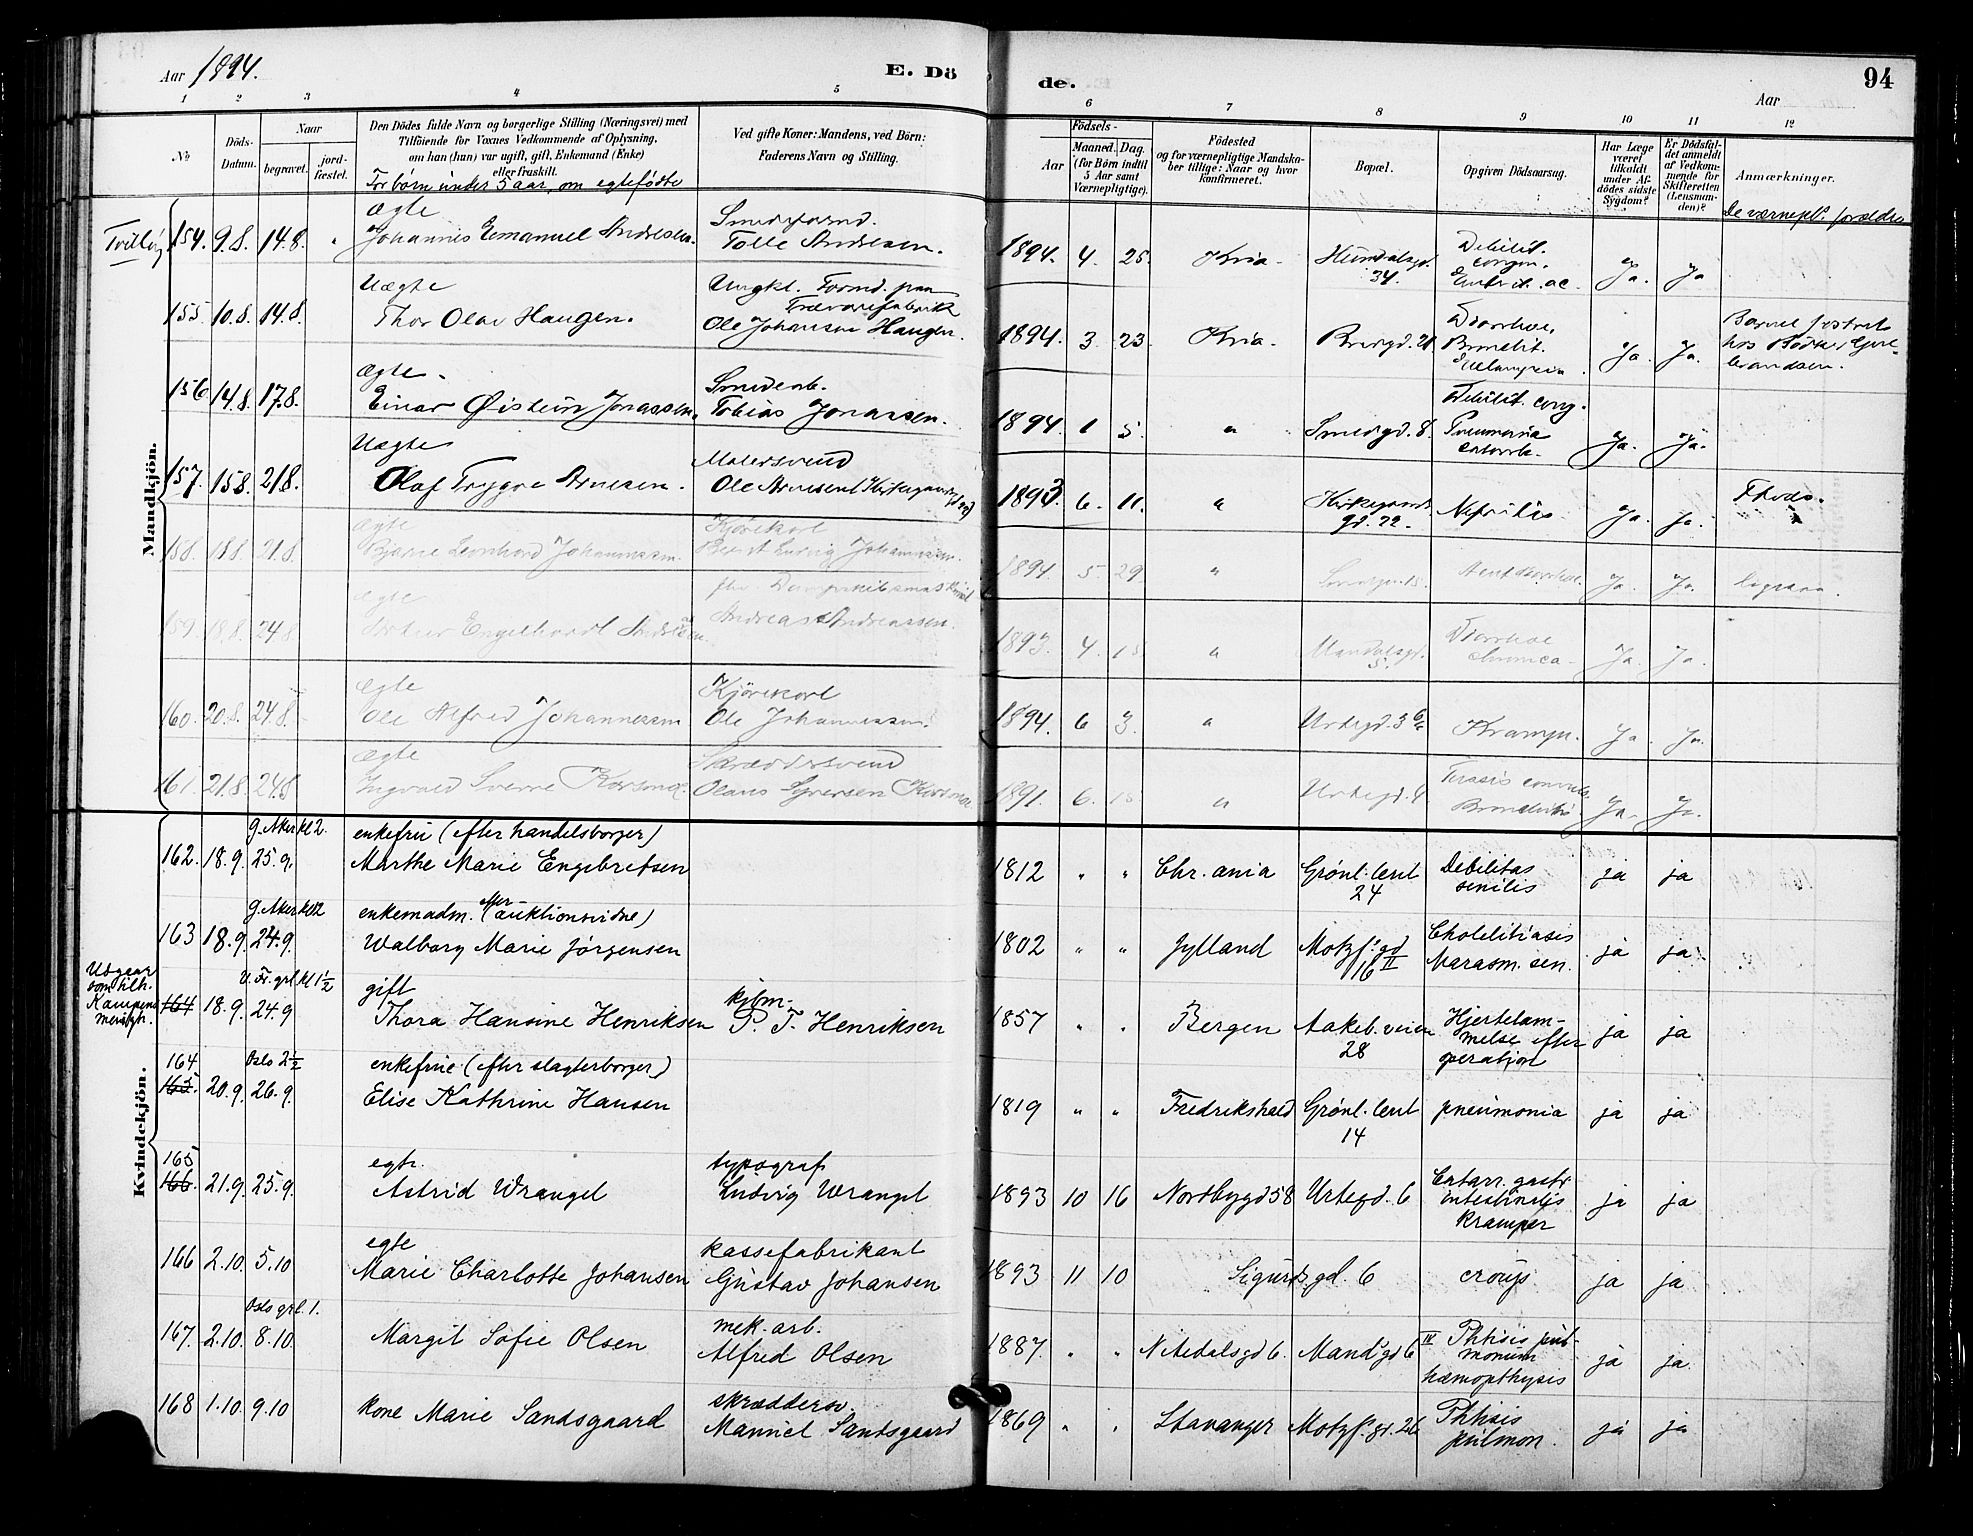 Aar 1894.
E. Dö
de.
94
Aar
1 2 3 4 5 6 7 8 9 10 11 12
No
Döds-Datum.
Naar
begravet.
jord-fæstet.
Den Dödes fulde Navn og borgerlige Stilling (Næringsvei) med
Tilföiende for Voxnes Vedkommende af Oplysning,
om han (hun) var ugift, gift, Enkemand (Enke)
eller fraskilt.
For børn under 5 aar, om egtefödte
Ved gifte Koner: Mandens, ved Börn:
Faderens Navn og Stilling.
Födsels-
Aar
Maaned. Dag.
(for Börn indtil
5 Aar samt
Værnepligtige).
Födested
og for værnepligtige Mandska-
ber tillige: Naar og hvor
konfirmeret.
Bopæl.
Opgiven Dödsaarsag.
Har Læge
været
tilkaldt
under Af-
dödes sidste
Sygdom?
Er Dödsfal-
det anmeldt
af Vedkom-
mende for
Skifteretten
(Lensman-
den)?
Anmærkninger.
De værnepl. forældre
Mandkjön.
Tvilling 154. 9.8. 14.8. Ægte
Johannes Emanuel Andresen. Tolle Andresen. 1894. 4. 25. Kria. 34. Debilit. Ja. Ja
155. 10.8. 14.8. Uægte
Thor Olav Haugen. Ungkl. Formd. paa
Trævarefabrik
Ole Johansen Haugen. 1894. 3. 23. Kria. Bredgd. 21 Diarrhoe, Ja. Ja. Barnet
hos
156 14.8. 17.8. Ægte.
Einar Øistein Jonassen. Smedearb.
Tobias Jonassen. 1894. 1 5. " Smedgd. 8. Debilit. cong.
Pneumonia
catarrh. Ja. Ja.
157. 15.8. 21.8. Uægte
Olaf Trygve Arnesen. Malersvend
Ole Arnesen 1893. 6. 11. " Kirkegaards
gd. 22. Nefritis Ja. Ja.
158. 18.8. 21.8. Ægte
Bjarne Leonhard Johannessen. Kjörekarl
Bernt Ludvig Johannessen. 1894. 5. 29. " Ja. Ja.
159. 18.8. 24.8. Ægte
Engelhardt Andreassen. Andreas Andreassen. 1893. 4. 15 " Mandalsgd.
5. Diarrhoe
chronica. Ja. Ja.
160. 20.8. 24.8. Ægte
Ole Alfred Johannessen Kjörekarl
Ole Johannessen. 1894. 6 3. " Urtegd. 36 Kramper. Ja. Ja.
161. 21.8. 24.8 Ægte
Ingvald Sverre Korsmo. Skræddersvend
Olaus Syversen Korsmo 1891. 6. 15 " Urtegd. 4 Tussis convuls.
Bronchitis Ja. Ja.
Kvindekjön.
162. 18.9. 25.9. g. Aker kl 2. enkefru (efter handelsborger)
Marthe Marie Engebretsen 1812 " " Chr.ania Grønl. leret
24 Debilitas
senilis ja ja
163 18.9. 24.9. g. Aker kl 2 enkemadm. (efter auktionsvidne)
Walborg Marie Jørgensen 1802 " " Jylland Motzf. gd
16 II Cholelitiasis
Marasm. sen. ja ja
Udgaar
som tilh.
Kampens
menigh. 164 18.9. 24.9 V. Fr. grl kl 1½ gift
Thora Hansine Henriksen kjbm.
P. T. Henriksen 1857 " " Bergen Aakeb. veien
28 Hjertelam-
melse efter
operation ja ja
164
165. 20.9. 26.9. Oslo 2½ enkefrue (efter slagterborger)
Elise Kathrine Hansen 1819 " " Fredrikshald Grønl. leret
14 pneumonia ja ja
165
166. 21.9. 25.9. egte.
Astrid Wrangel typograf
Ludvig Wrangel 1893 10 16 Nordbygd 58 Urtegd. 6 Catarr. gastr.
intestinalis
kramper ja ja
166 2.10. 5.10 egte
Marie Charlotte Johansen kassefabrikant
Gustav Johansen 1893 11 10 Sigurds gd. 6 croup ja ja
167. 2.10. 8.10 Oslo grl. 1. Margit Sofie Olsen mek. arb.
Alfred Olsen 1887. " " Nitedalsgd 6. Mand. gd 6 IV Phtisis pul-
monum
hæmopthysis ja ja.
168 1.10. 9.10 kone Marie Sandsgaard skræddersv.
Manuel Sandsgaard 1869 " " Stavanger Motzf. gd. 26 Phtisis
pulmon. ja ja